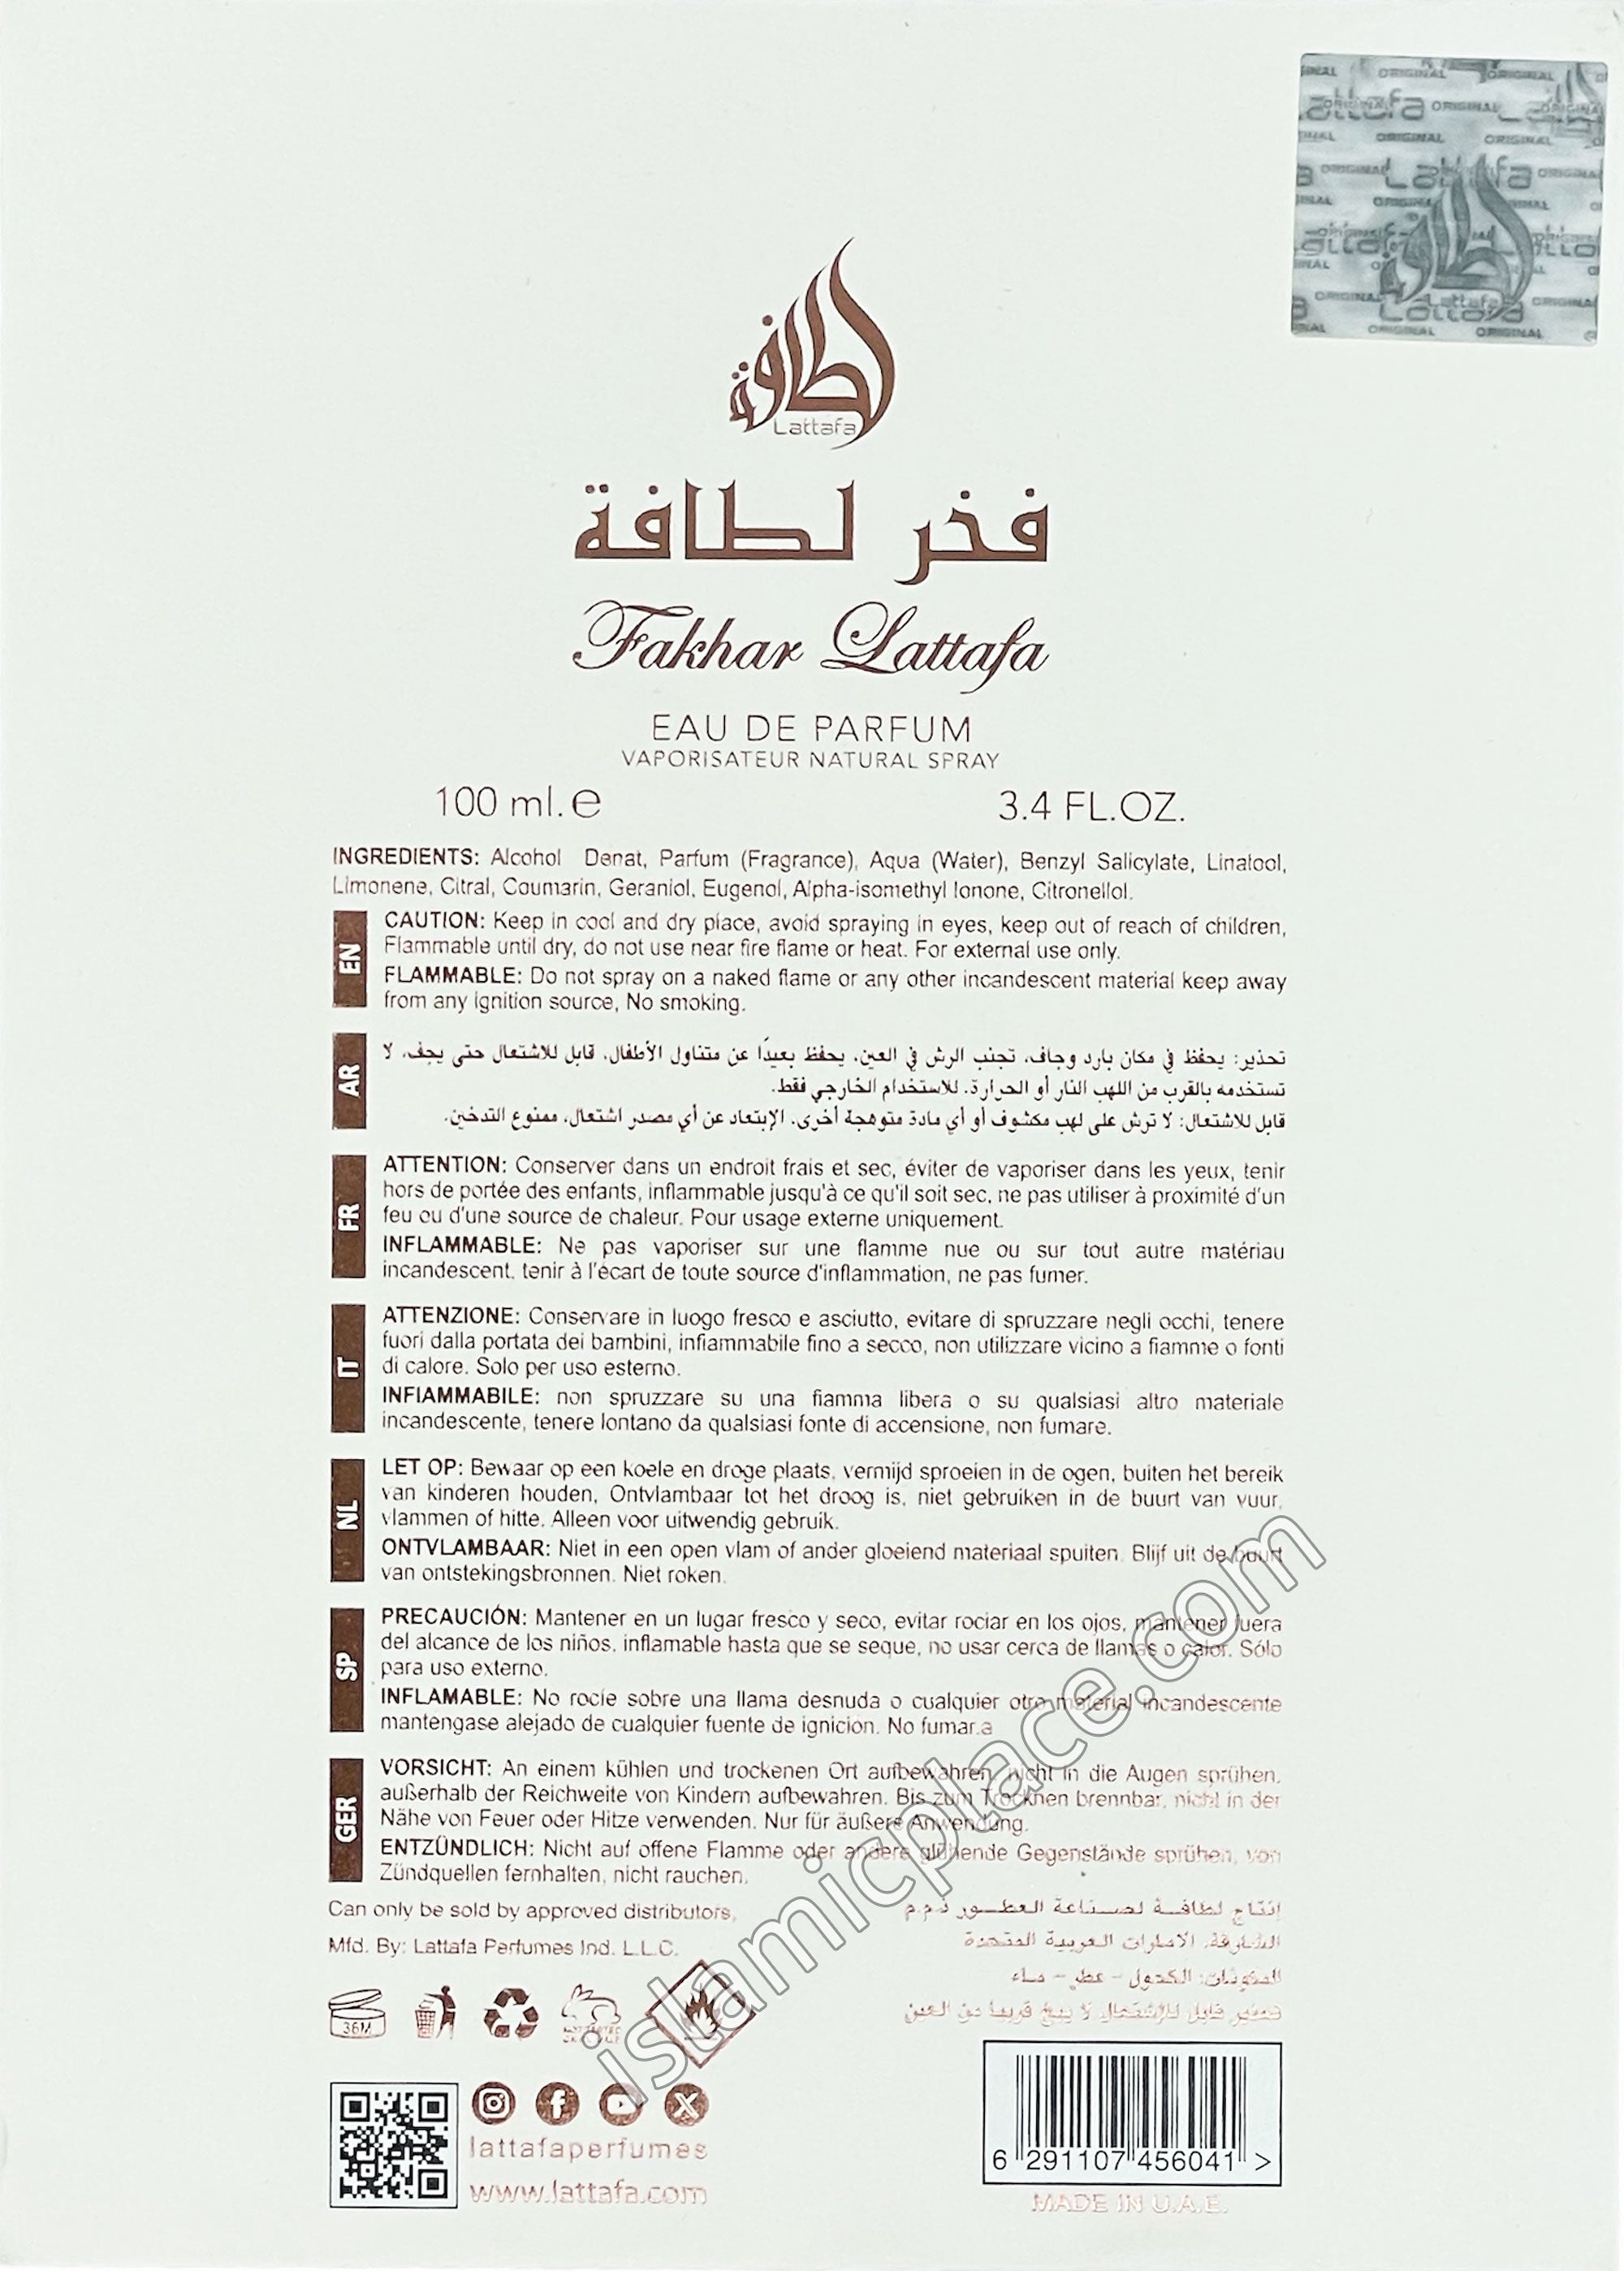 ORIGINAL
Lattafa
لطافة
Lattafa
فخر لطافة
Fakhar Lattafa
EAU DE PARFUM
VAPORISATEUR NATURAL SPRAY
100 ml. e 3.4 FL.OZ.
INGREDIENTS: Alcohol Denat, Parfum (Fragrance), Aqua (Water), Benzyl Salicylate, Linalool,
Limonene, Citral, Coumarin, Geraniol, Eugenol, Alpha-isomethyl Ionone, Citronellol.
EN
CAUTION: Keep in cool and dry place, avoid spraying in eyes, keep out of reach of children,
Flammable until dry, do not use near fire flame or heat. For external use only.
FLAMMABLE: Do not spray on a naked flame or any other incandescent material keep away
from any ignition source, No smoking.
AR
تحذير: يحفظ في مكان بارد وجاف، تجنب الرش في العين، يحفظ بعيدًا عن متناول الأطفال، قابل للاشتعال حتى يجف، لا
تستخدمه بالقرب من اللهب النار أو الحرارة. للاستخدام الخارجي فقط.
قابل للاشتعال: لا ترش على لهب مكشوف أو أي مادة متوهجة أخرى. الإبتعاد عن أي مصدر اشتعال، ممنوع التدخين.
FR
ATTENTION: Conserver dans un endroit frais et sec, éviter de vaporiser dans les yeux, tenir
hors de portée des enfants, inflammable jusqu'à ce qu'il soit sec, ne pas utiliser à proximité d'un
feu ou d'une source de chaleur. Pour usage externe uniquement.
INFLAMMABLE: Ne pas vaporiser sur une flamme nue ou sur tout autre matériau
incandescent, tenir à l'écart de toute source d'inflammation, ne pas fumer.
IT
ATTENZIONE: Conservare in luogo fresco e asciutto, evitare di spruzzare negli occhi, tenere
fuori dalla portata dei bambini, infiammabile fino a secco, non utilizzare vicino a fiamme o fonti
di calore. Solo per uso esterno.
INFIAMMABILE: non spruzzare su una fiamma libera o su qualsiasi altro materiale
incandescente, tenere lontano da qualsiasi fonte di accensione, non fumare.
NL
LET OP: Bewaar op een koele en droge plaats, vermijd sproeien in de ogen, buiten het bereik
van kinderen houden, Ontvlambaar tot het droog is, niet gebruiken in de buurt van vuur,
vlammen of hitte. Alleen voor uitwendig gebruik.
ONTVLAMBAAR: Niet in een open vlam of ander gloeiend materiaal spuiten. Blijf uit de buurt
van ontstekingsbronnen. Niet roken.
SP
PRECAUCIÓN: Mantener en un lugar fresco y seco, evitar rociar en los ojos, mantener fuera
del alcance de los niños, inflamable hasta que se seque, no usar cerca de llamas o calor. Sólo
para uso externo.
INFLAMABLE: No rocíe sobre una llama desnuda o cualquier otro material incandescente
mantengase alejado de cualquier fuente de ignicion. No fumar.a
GER
VORSICHT: An einem kühlen und trockenen Ort aufbewahren, nicht in die Augen sprühen,
außerhalb der Reichweite von Kindern aufbewahren. Bis zum Trocknen brennbar, nicht in der
Nähe von Feuer oder Hitze verwenden. Nur für äußere Anwendung.
ENTZÜNDLICH: Nicht auf offene Flamme oder andere glühende Gegenstände sprühen, von
Zündquellen fernhalten, nicht rauchen.
Can only be sold by approved distributors,
Mfd. By: Lattafa Perfumes Ind. L.L.C.
إنتاج لطافة لصناعة العطور ذ.م.م
الشارقة، الامارات العربية المتحدة
المكونات: الكحول - عطر - ماء
تحذير قابل للإشتعال لا يبخ قريبا من العين
36M
islamicplace.com
lattafaperfumes
www.lattafa.com
6 291107 456041 >
MADE IN U.A.E.